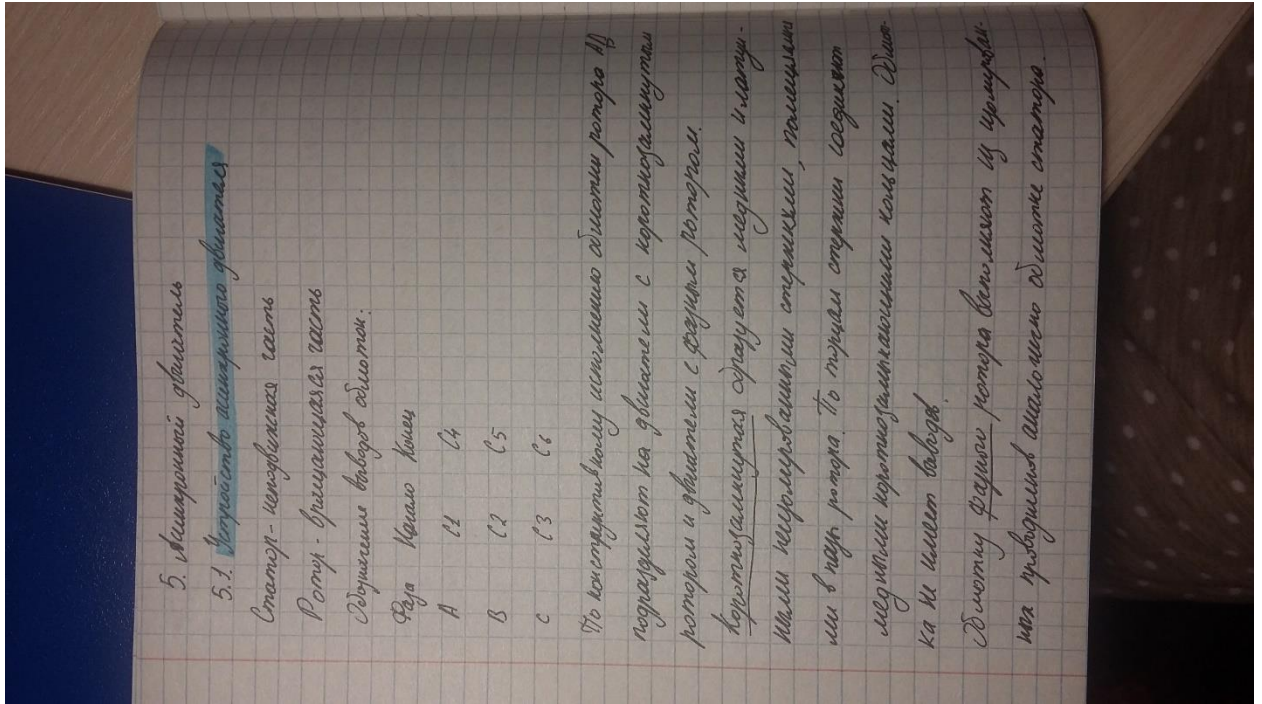 5. Асинхронный двигатель
5.1. Устройство асинхронного двигателя
Статор - неподвижная часть
Ротор - вращающаяся часть
Обозначение выводов обмоток.
Фаза Начало Конец
А С1 С4
В С2 С5
С С3 С6
По конструктивному исполнению обмотки ротора АД
подразделяют на двигатели с короткозамкнутым
ротором и двигатели с фазным ротором.
Короткозамкнутая образуется медными и латун-
ными неизолированными стержнями, помещаемы
ми в пазы ротора. По торцам стержни соединяют
медными короткозамыкающими кольцами. Обмот-
ка не имеет выводов.
Обмотку фазного ротора выполняют из изолирован-
ных проводников аналогично обмотке статора.